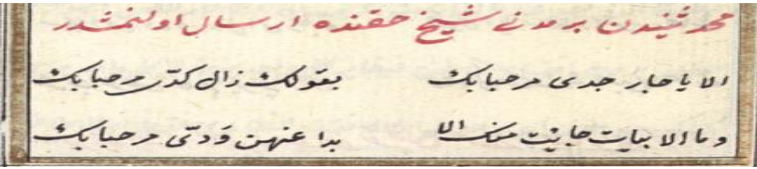 محدثيندن برمدنى شيخ حقنده ارسال اولنمشدر
الا يا جار جدى مرحبا بك بقولك زال كدّى مرحبا بك
وما الابيات جائت منك الا بدا عنهن ودّى مرحبا بك